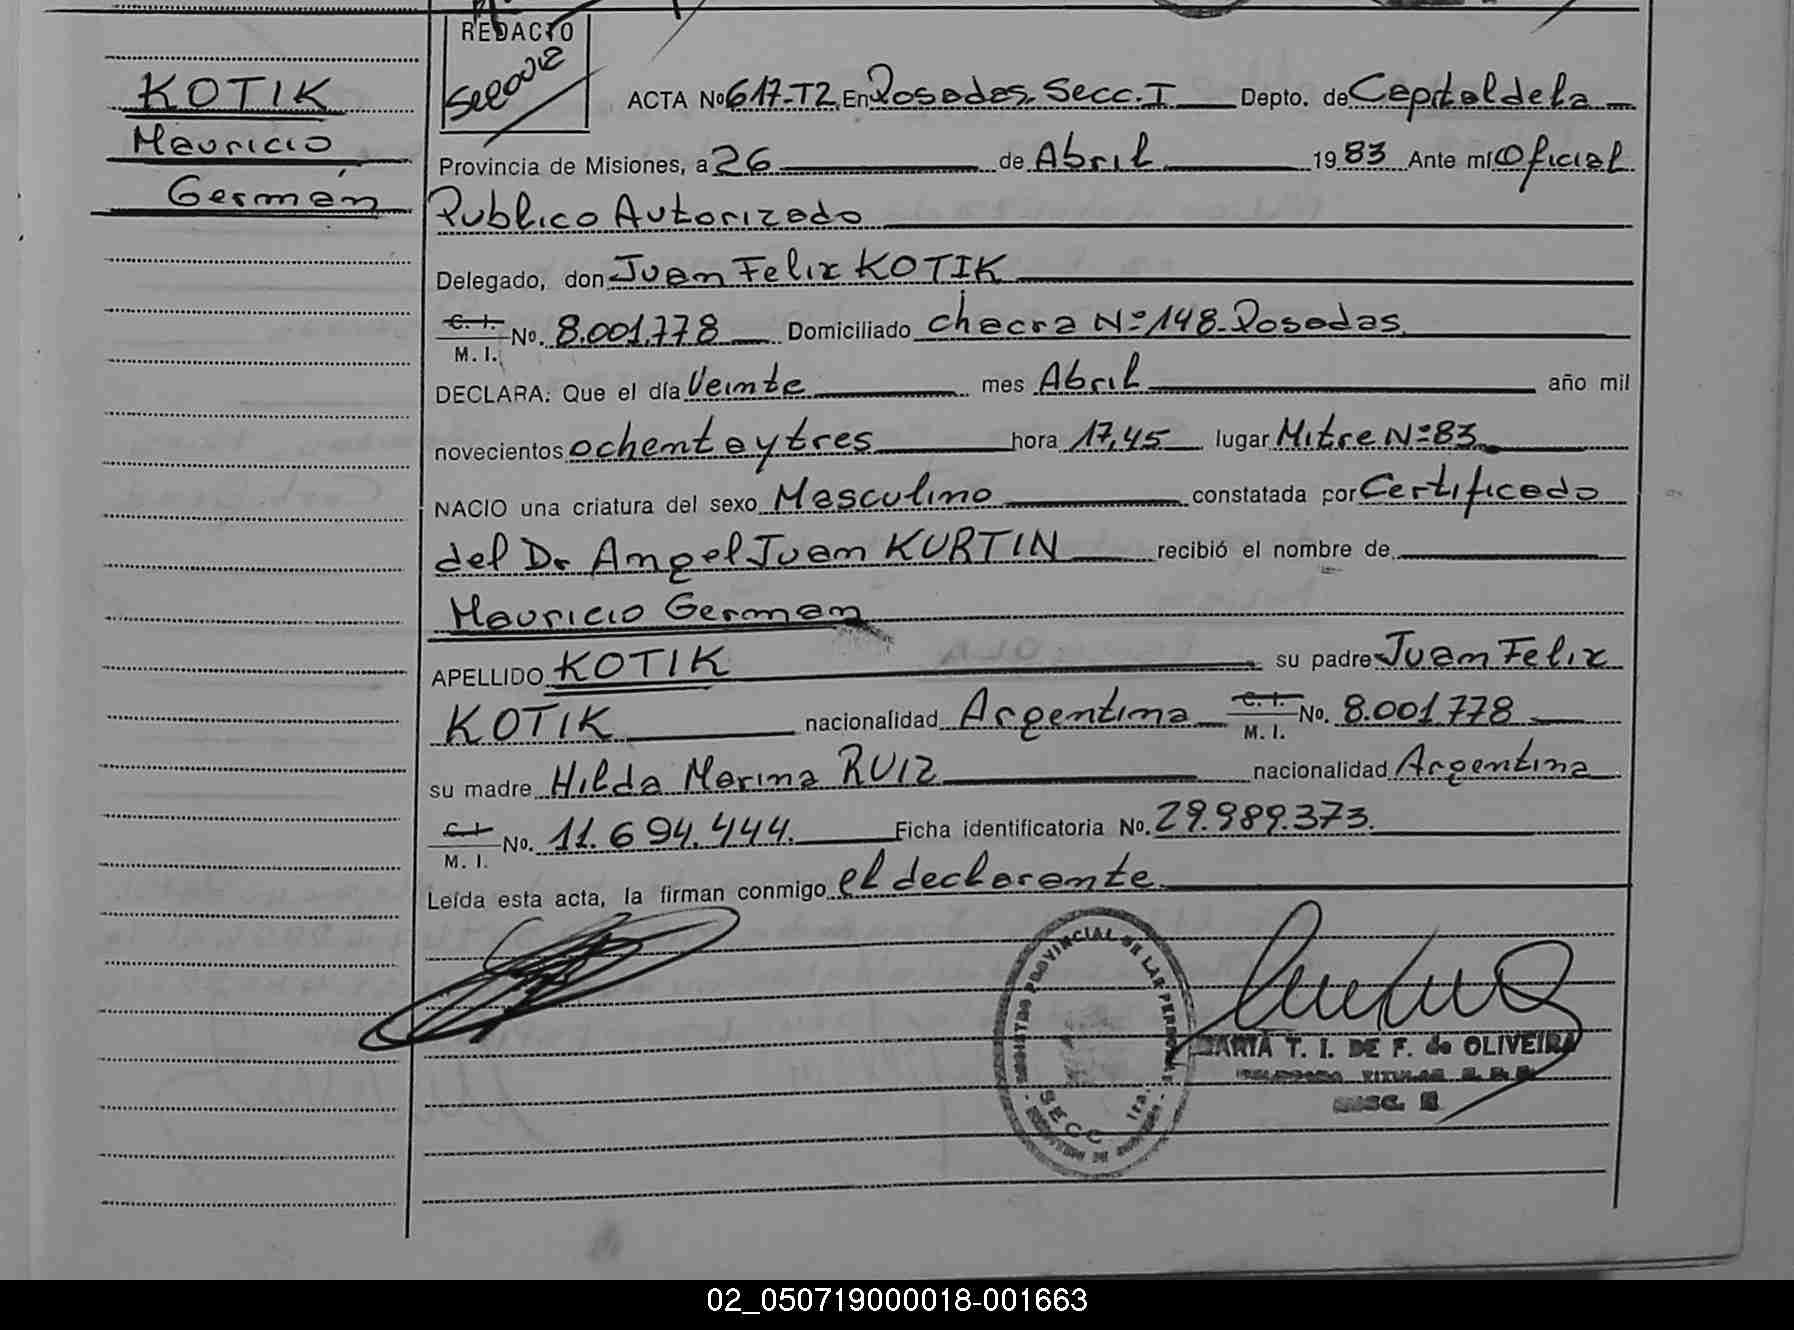 REDACTO
KOTIK
Mauricio
Germán
ACTA Nº 617-T2 En Posadas. Secc. I Depto. de Capital de la
Provincia de Misiones, a 26 de Abril 1983 Ante mí Oficial
Publico Autorizado
Delegado, don Juan Felix KOTIK
C. I.
M. I. No. 8.001.778 Domiciliado chacra Nº 148-Posadas
DECLARA: Que el día Veinte mes Abril año mil
novecientos ochenta y tres hora 17,45 lugar Mitre Nº 83
NACIO una criatura del sexo Masculino constatada por Certificado
del Dr Angel Juan KURTIN recibió el nombre de
Mauricio German
APELLIDO KOTIK su padre Juan Felix
KOTIK nacionalidad Argentina C. I. M. I. No. 8.001.778
su madre Hilda Marina RUIZ nacionalidad Argentina
C. I.
M. I. No. 11.694.444. Ficha identificatoria No. 29.989.373.
Leída esta acta, la firman conmigo el declarante.
REGISTRO PROVINCIAL DE LAS PERSONAS
SECC 1ra.
MARIA T. I. DE F. de OLIVEIRA
02_050719000018-001663